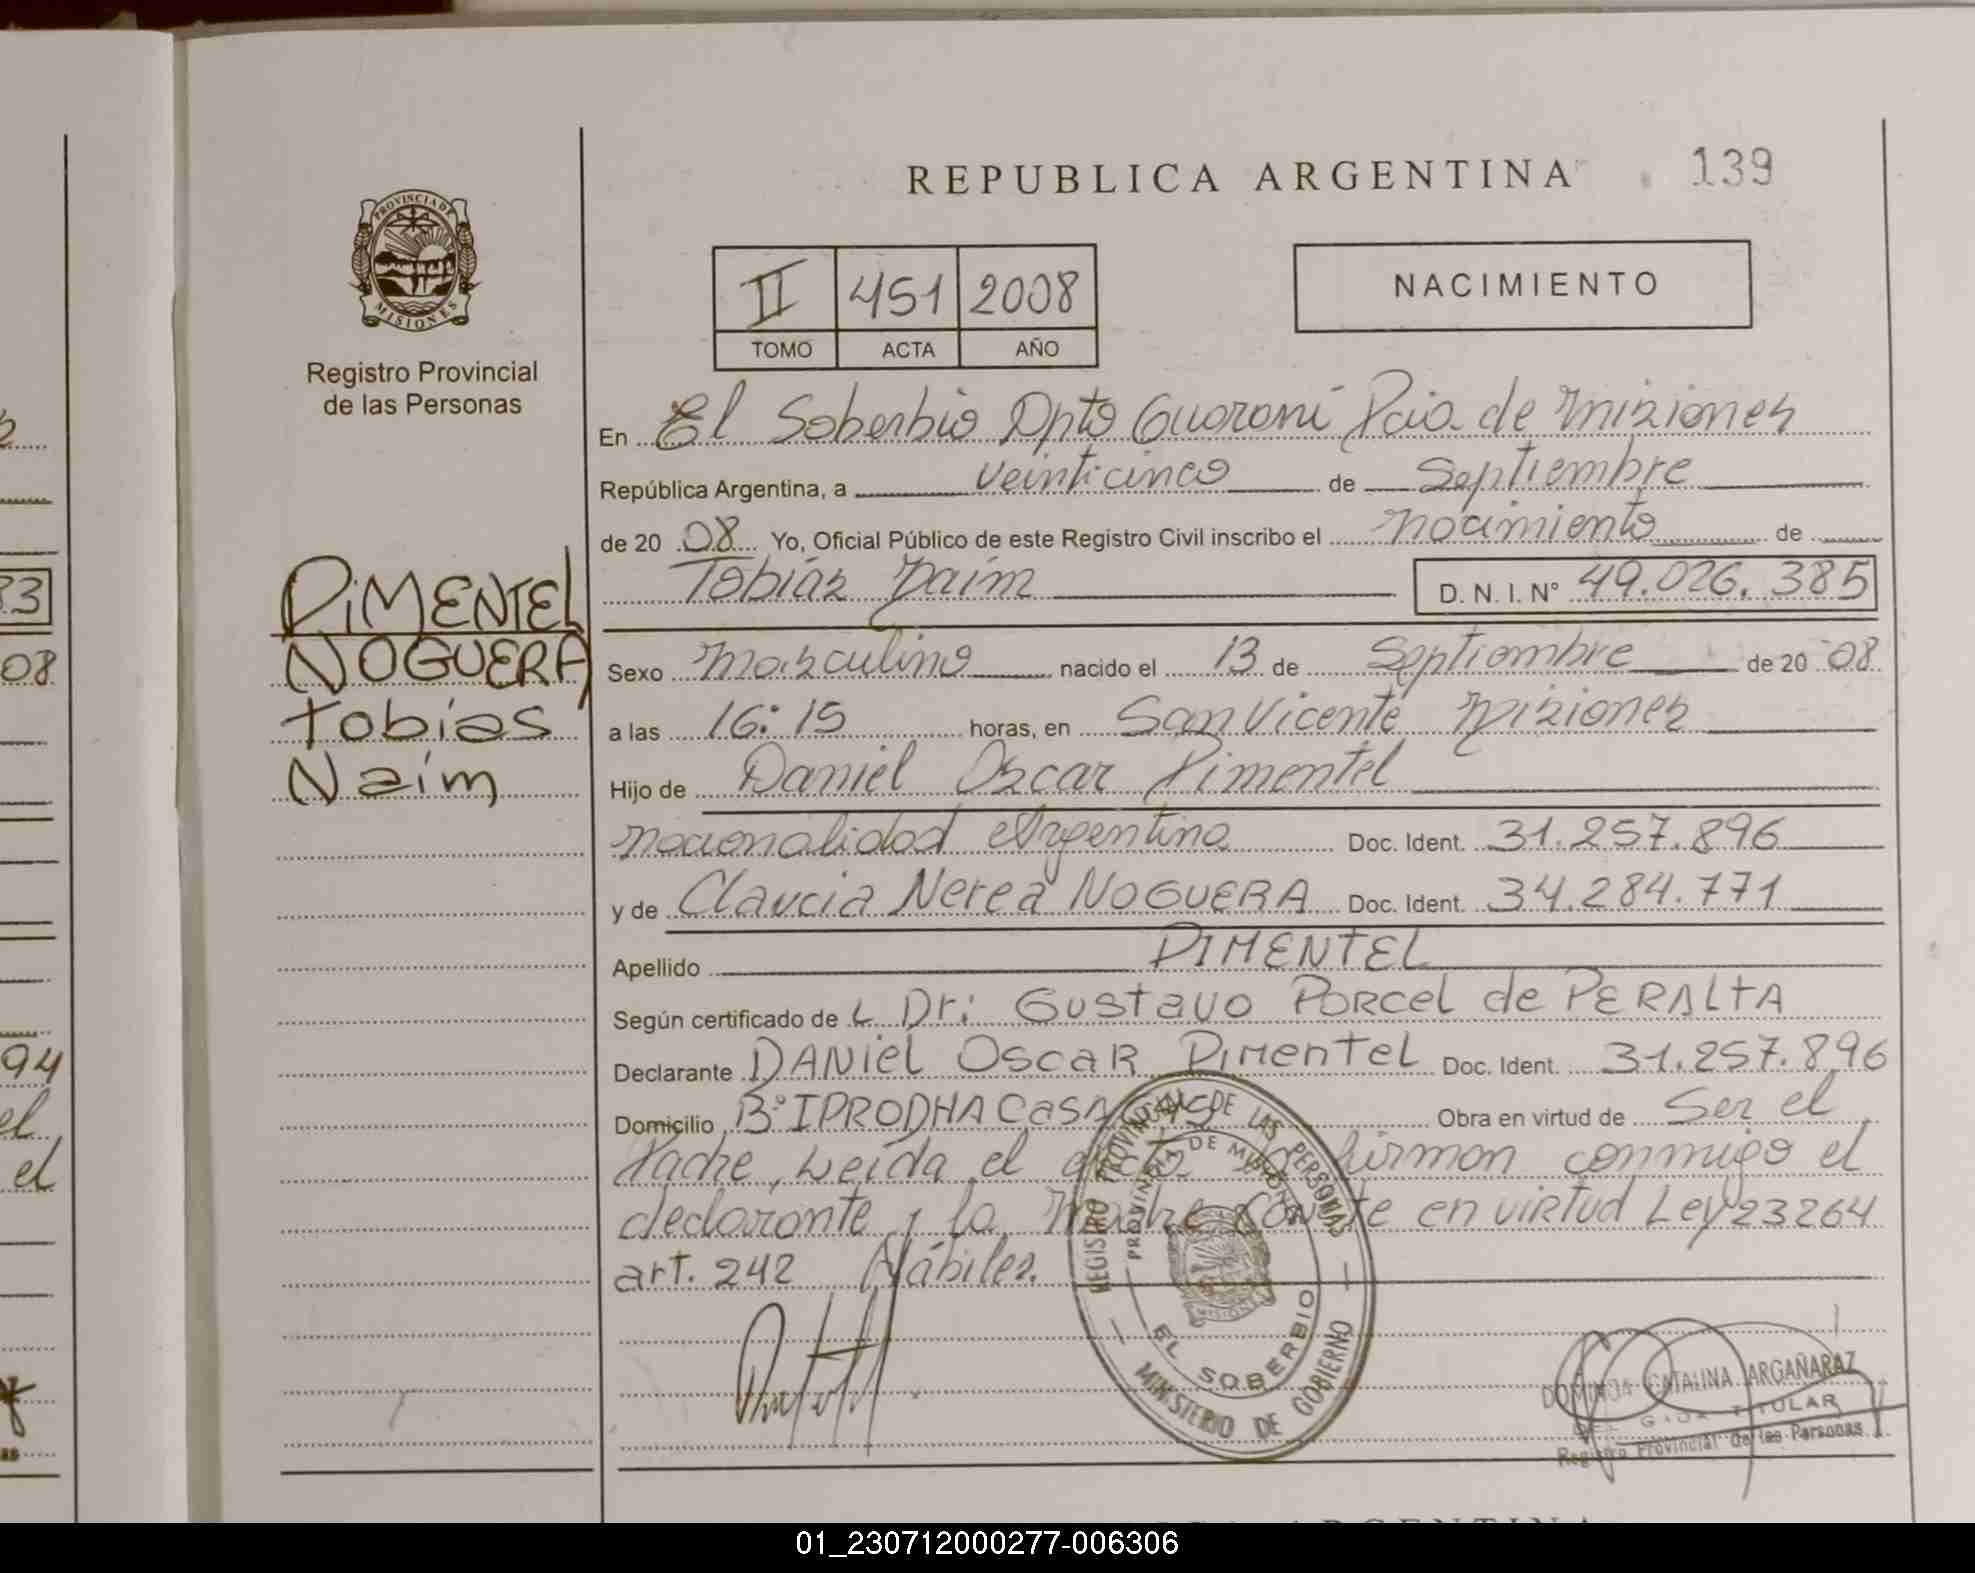 REPUBLICA ARGENTINA
139
PROVINCIA DE
MISIONES
Registro Provincial
de las Personas
II 451 2008
TOMO ACTA AÑO
NACIMIENTO
En El Soberbio Dpto Guaraní Pcia de Misiones
República Argentina, a veinticinco de Septiembre
de 20 08 Yo, Oficial Público de este Registro Civil inscribo el nacimiento de
Tobías Naím D. N. I. Nº 49.026.385
PIMENTEL
NOGUERA
Tobías
Naím
Sexo masculino nacido el 13 de Septiembre de 20 08
a las 16:15 horas, en San Vicente Misiones
Hijo de Daniel Oscar Pimentel
nacionalidad Argentina Doc. Ident. 31.257.896
y de Claucia Nerea NOGUERA Doc. Ident. 34.284.771
Apellido PIMENTEL
Según certificado de L Dr: Gustavo PORCel de PERALTA
Declarante DANiel OSCAR Pimentel Doc. Ident. 31.257.896
Domicilio Bº IPRODHA CASA Obra en virtud de Ser el
Padre, Leída el firman conmigo el
declarante y la Madre en virtud Ley 23264
art. 242 Hábiles.
REGISTRO PROVINCIAL DE LAS PERSONAS
PROVINCIA DE MISIONES
MISIONES
EL SOBERBIO
MINISTERIO DE GOBIERNO
CATALINA ARGAÑARAZ
TITULAR
Registro Provincial de las Personas
83
08
94
el
el
01_230712000277-006306